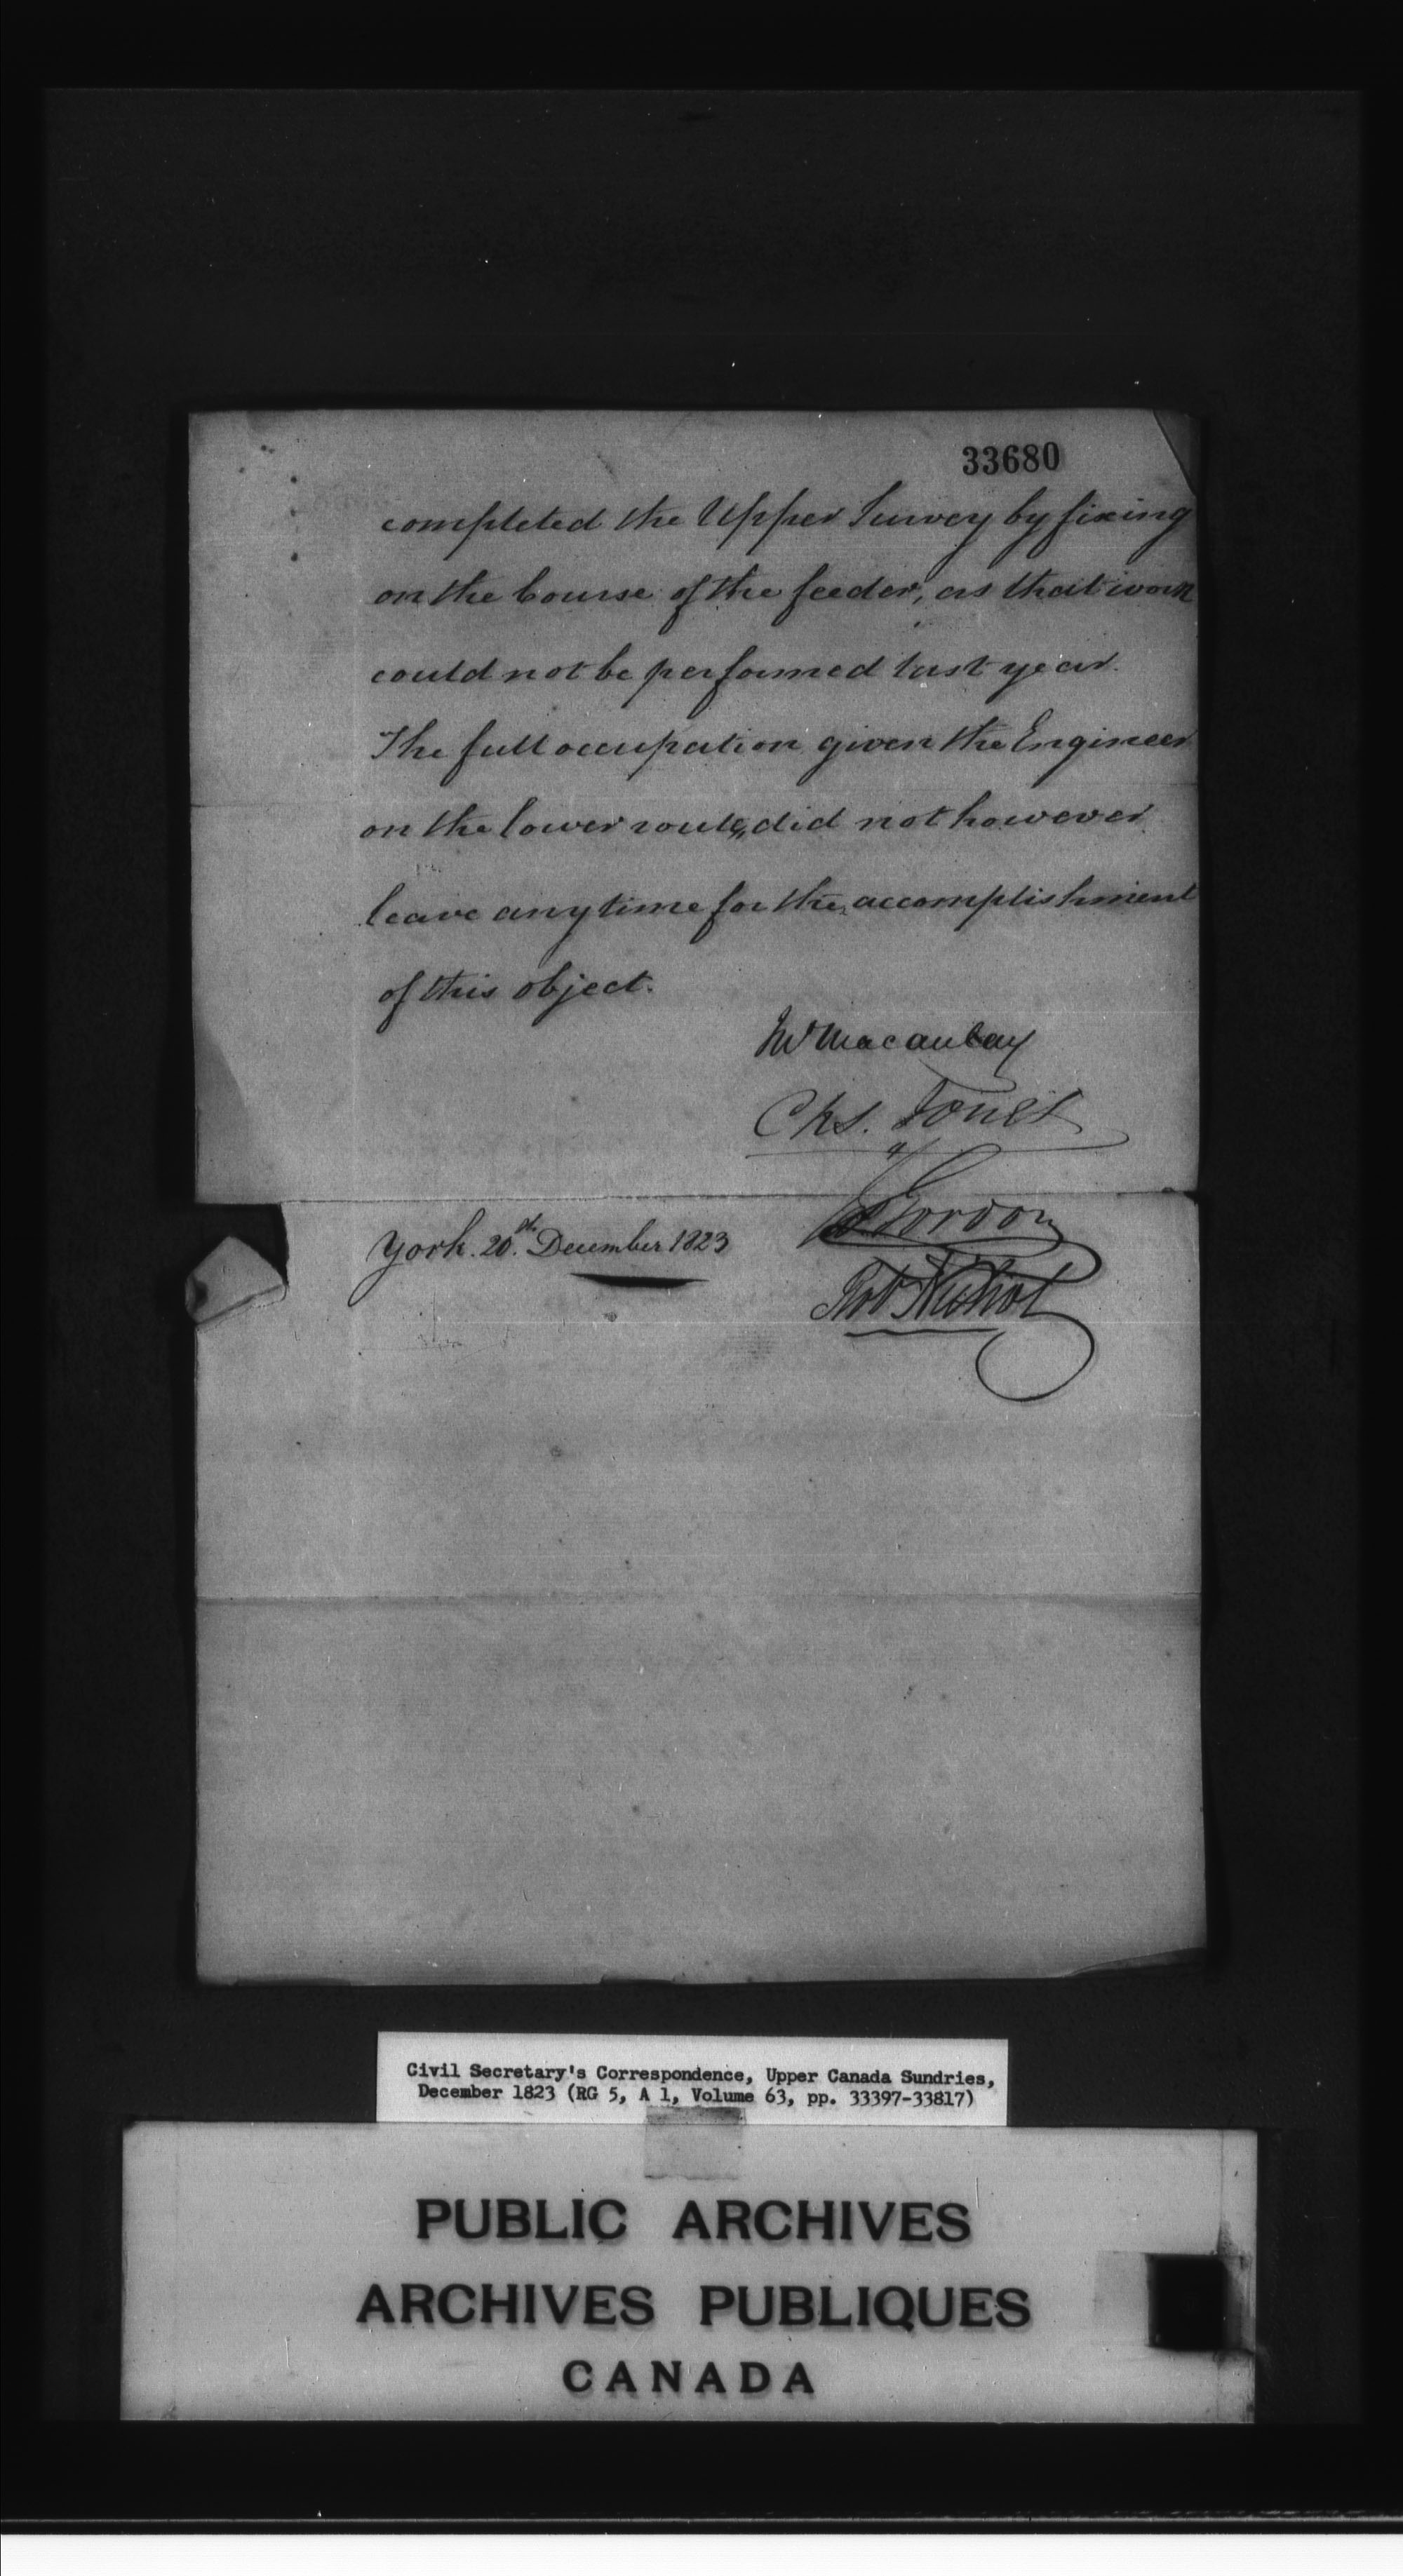 33680
completed the Upper Survey by fixing
on the Course of the feeder, as that work
could not be performed last year.
The full occupation given the Engineer
on the lower route, did not however
leave any time for the accomplishment
of this object.
Jno Macaulay
Chs. Jones
J Gordon
York. 20th. December 1823
Robt Nichol
Civil Secretary's Correspondence, Upper Canada Sundries,
December 1823 (RG 5, A 1, Volume 63, pp. 33397-33817)
PUBLIC ARCHIVES
ARCHIVES PUBLIQUES
CANADA